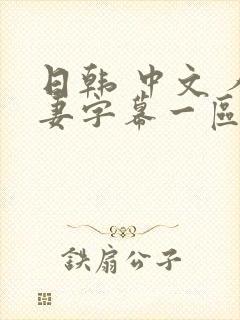 日韩 中文
妻字幕一區
鉄扇公子